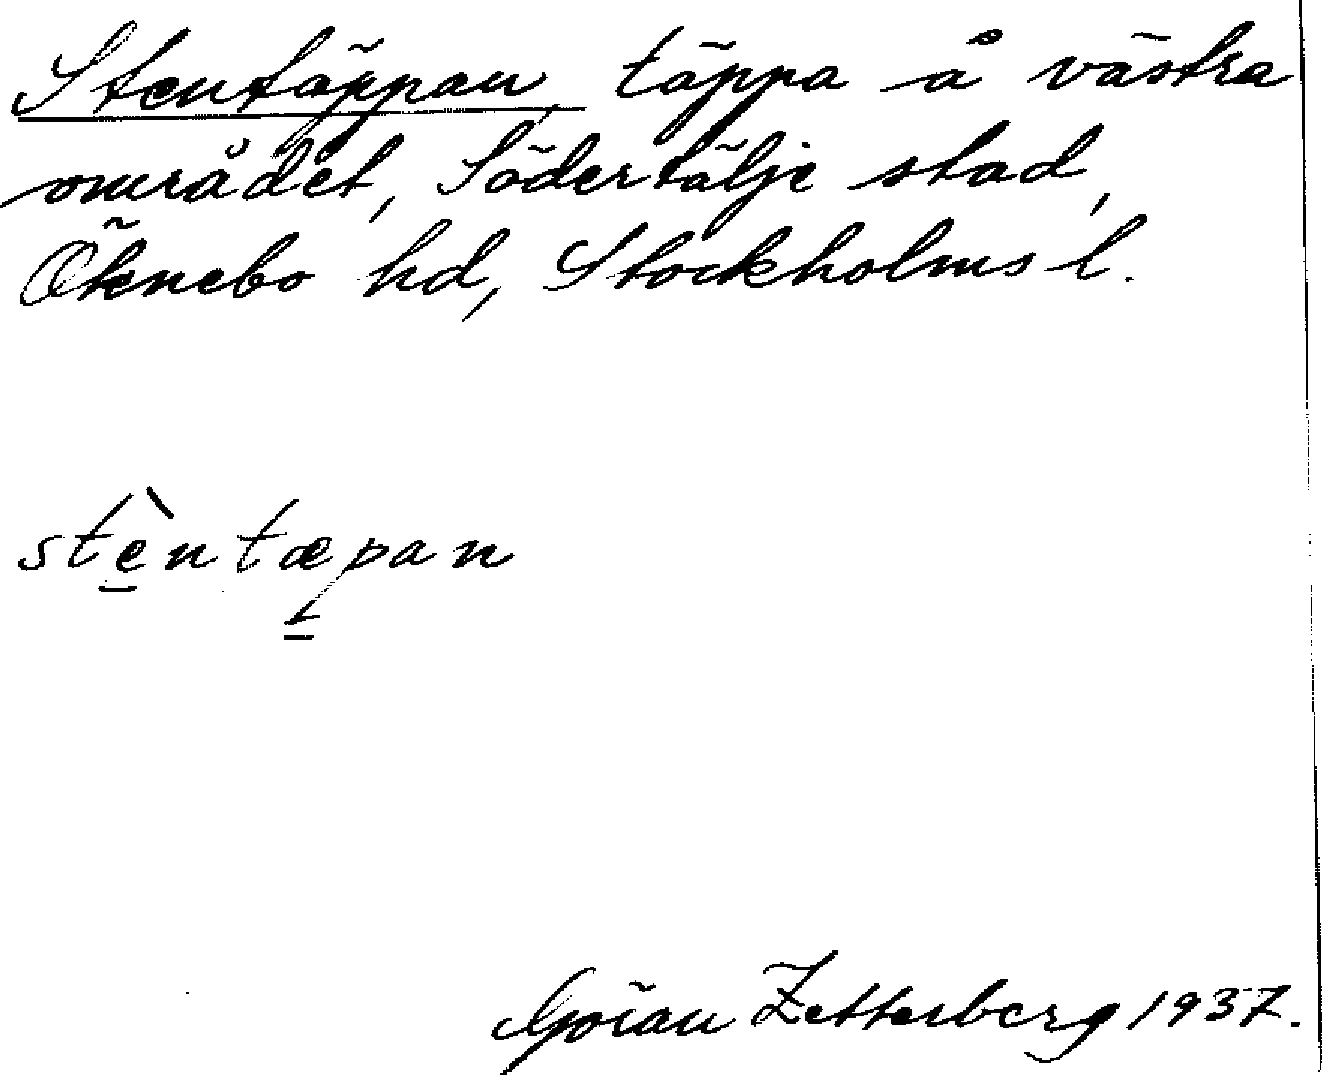 Stentäppan, täppa å västra
området, Södertälje stad,
Öknebo hd, Stockholms l.
stèntæpan
Göran Zetterberg 1937.